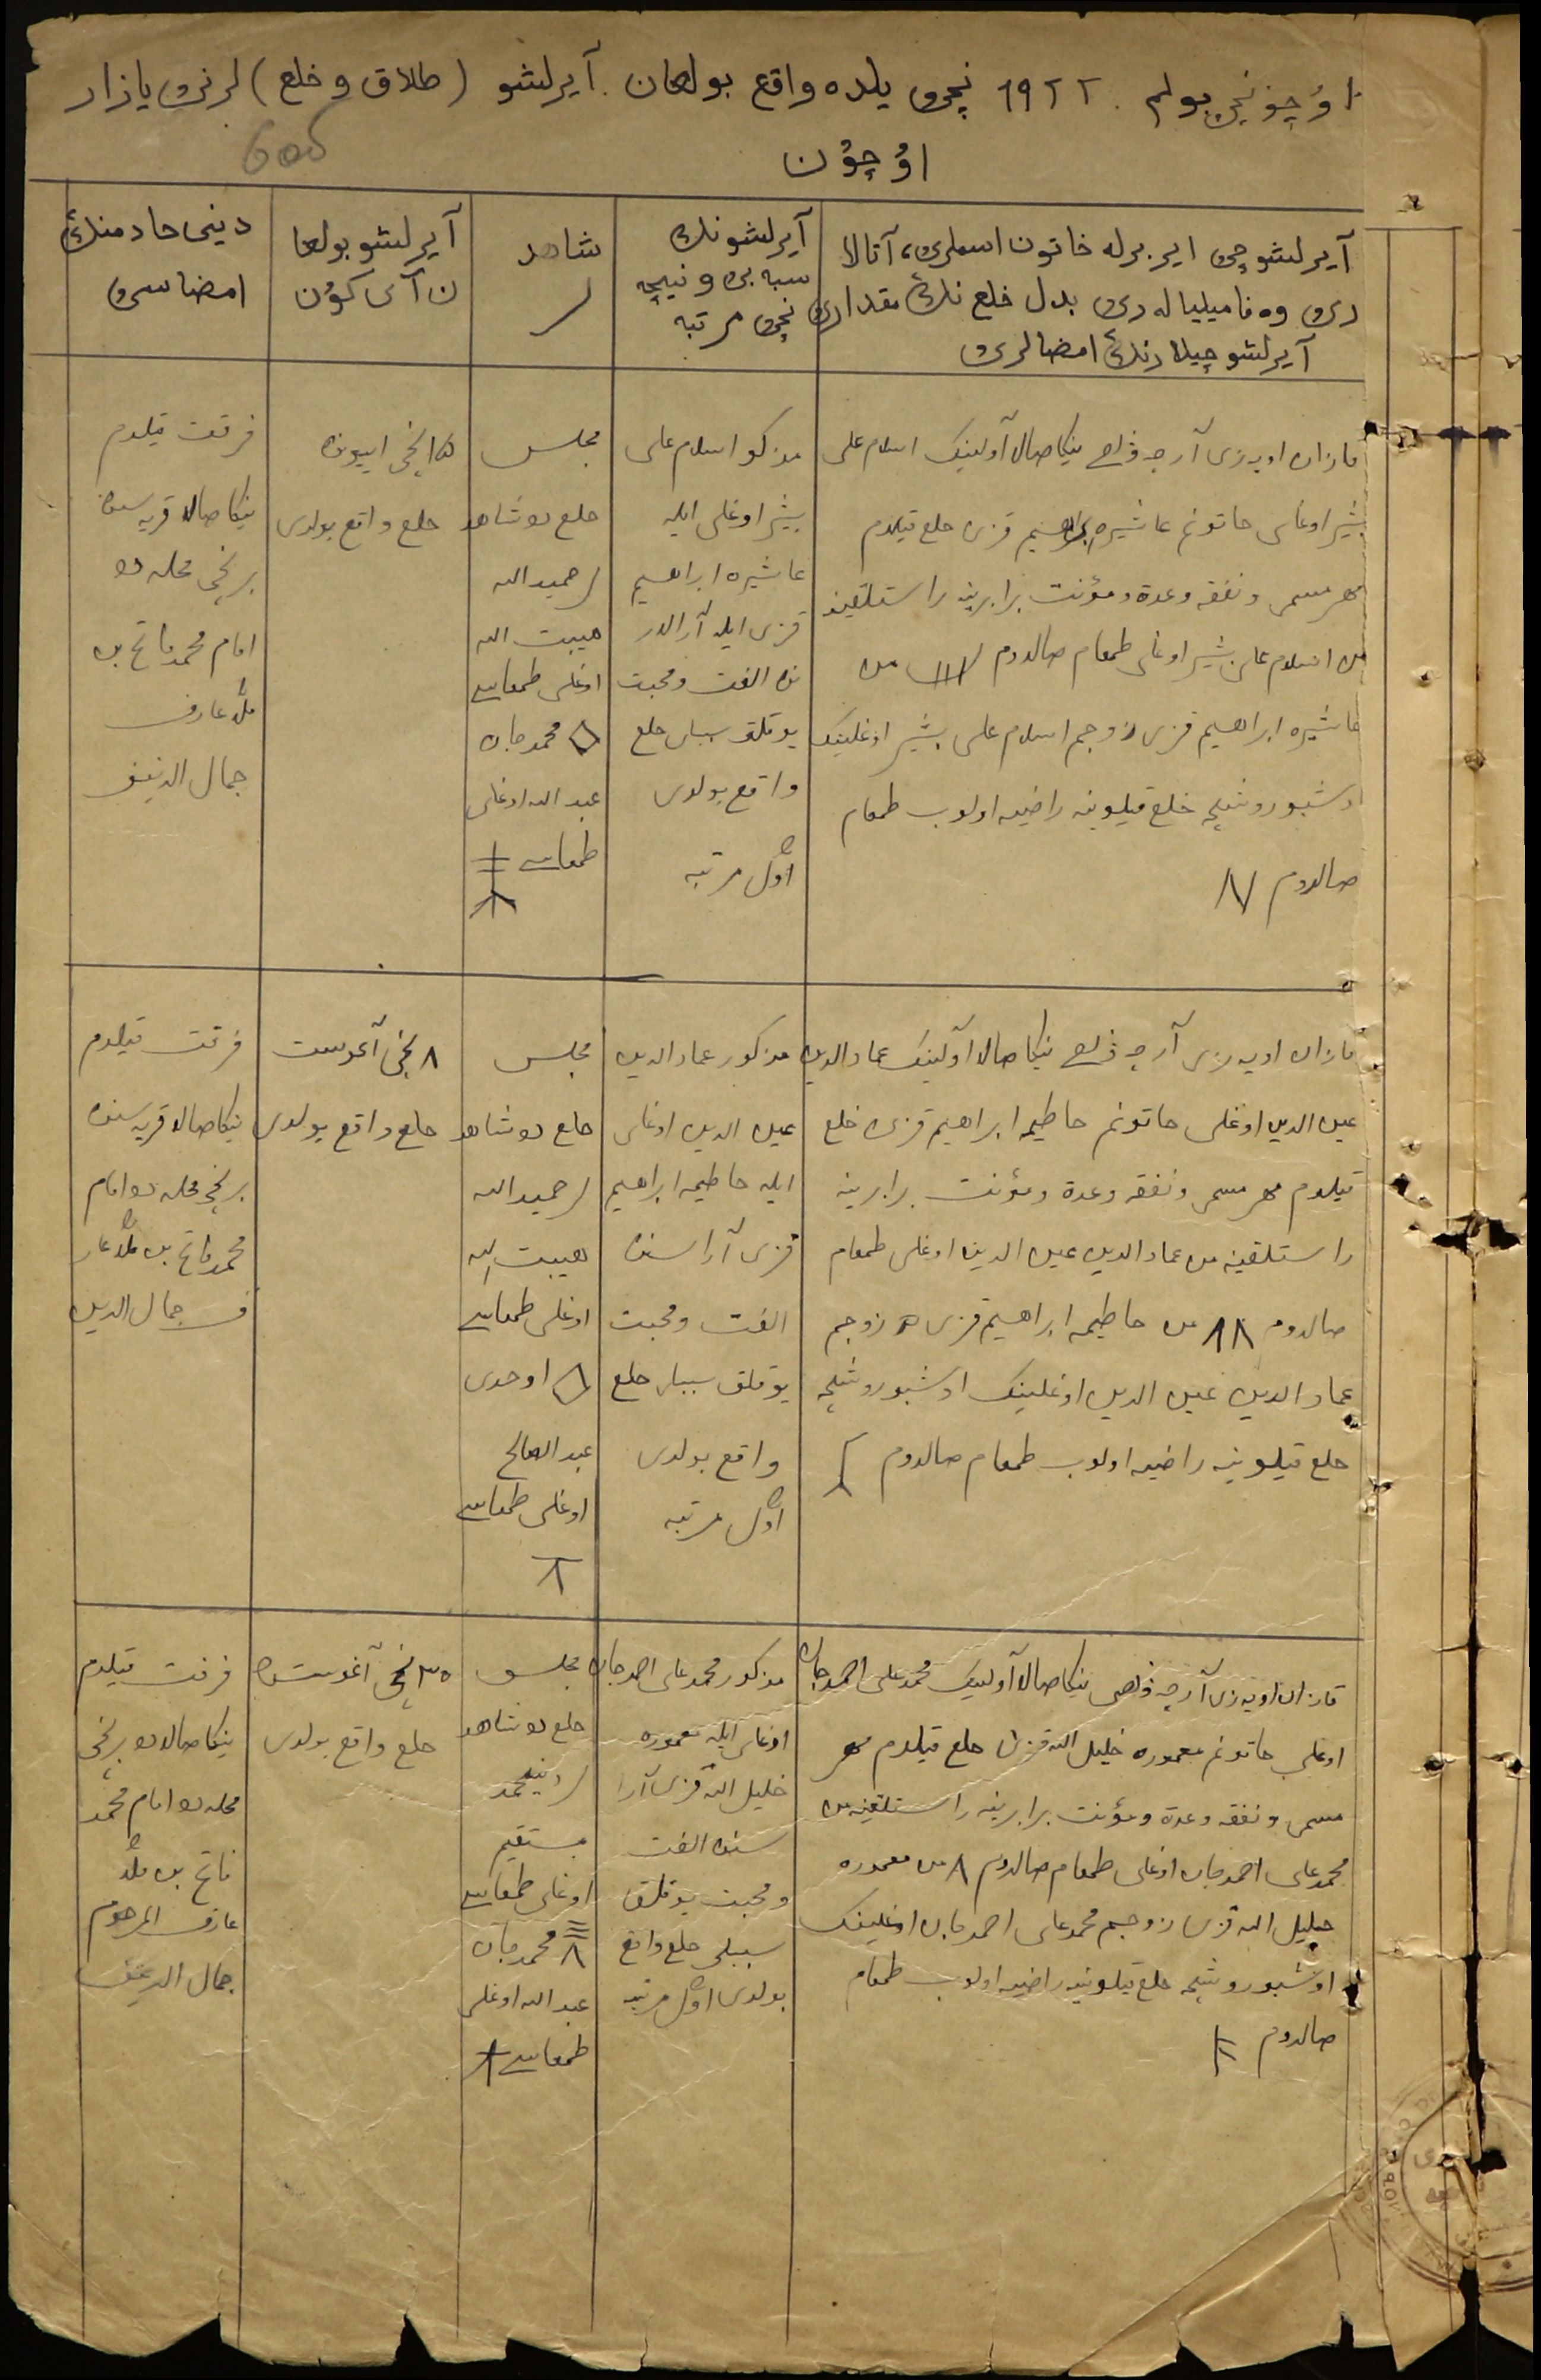 اوُچونچی بولم. ١٩٢٢ نچی یلده واقع بولغان. آیرلشو (طلاق و خلع) لرنی یازار
اوُچوُن
آیرلشوچی ایر برله خاتون اسملری، آتالا
ری وه فامیلیاله ری بدل خلع نڭ مقداری
آیرلشوچیلارنڭ امضالری
آیرلشونڭ
سبه بی و نیچه
نچی مرتبه
شاهد
لر
آیرلشو بولغا
ن آی کوُن
دینی خادمنڭ
امضاسی
قازان اویەزی آرچه وُلصی ینكا صالا آولینك اسلام علی
بشیر اوغلی خاتونم عاشیره ابراهیم قزی خلع قیلدم
مهر مسمی و نفقه وعدة ومؤنت برابرینه راستلقینه
من اسلام علی بشیر اوغلی طمغام صالدوم ااا من
عاشیره ابراهیم قزی زوجم اسلام علی بشیر اوغلینك
اوشبو روشچه خلع قیلوینه راضیه اولوب طمغام
صالدوم
مذكور اسلام علی
بشیر اوغلی ایله
عاشیره ابراهیم
قزی ایله آرالار
نده الفت ومحبت
یوقلق سببلی خلع
واقع بولدی
اوّل مرتبه
مجلس
خلع ده شاهد
لر حمیدالله
هیبت الله
اوغلی طمغاسی
محمدجان
عبدالله اوغلی
طمغاسی
١٥ نچی اییونده
خلع واقع بولدی
فرقت قیلدم
ینكا صالا قریه سنده
برنچی محله ده
امام محمد فاتح بن
ملّا عارف
جمال الدینف
قازان اویەزی آرچه وُلصی ینكا صالا آولینك عمادالدین
عین الدین اوغلی خاتونم حاطیمه ابراهیم قزی خلع
قیلدم مهر مسمی و نفقه وعدة ومؤنت برابرینه
راستلقینه من عمادالدین عین الدین اوغلی طمغام
صالدوم ٨٨ من حاطیمه ابراهیم قزی زوجم
عمادالدین عین الدین اوغلینك اوشبو روشچه
خلع قیلوینه راضیه اولوب طمغام صالدوم
مذكور عمادالدین
عین الدین اوغلی
ایله حاطیمه ابراهیم
قزی آراسنده
الفت ومحبت
یوقلق سببلی خلع
واقع بولدی
اوّل مرتبه
مجلس
خلع ده شاهد
لر حمیدالله
هیبت الله
اوغلی طمغاسی
اوحدی
عبدالصالح
اوغلی طمغاسی
٨ نچی آغوست
خلع واقع بولدی
فرقت قیلدم
ینكا صالا قریه سنده
برنچی محله ده امام
محمد فاتح بن ملّا عار
ف جمال الدین
قازان اویەزی آرچه وُلصی ینكا صالا آولینك محمدعلی احمدجان
اوغلی خاتونم معموره خلیل الله قزن خلع قیلدم مهر
مسمی و نفقه وعدة ومؤنت برابرینه راستلقینه من
محمدعلی احمدجان اوغلی طمغام صالدوم ٨ من معموره
خلیل الله قزی زوجم محمدعلی احمدجان اوغلینك
اوشبو روشچه خلع قیلوینه راضیه اولوب طمغام
صالدوم
مذكور محمدعلی احمدجان
اوغلی ایله معموره
خلیل الله قزی آرا
سنده الفت
ومحبت یوقلق
سببلی خلع واقع
بولدی اوّل مرتبه
مجلس
خلع ده شاهد
مستقیم
اوغلی طمغاسی
محمدجان
عبدالله اوغلی
طمغاسی
٣٠ نچی آغوستده
خلع واقع بولدی
فرقت قیلدم
ینكا صالاده برنچی
محله ده امام محمد
فاتح بن ملّا
عارف المرحوم
جمال الدینف